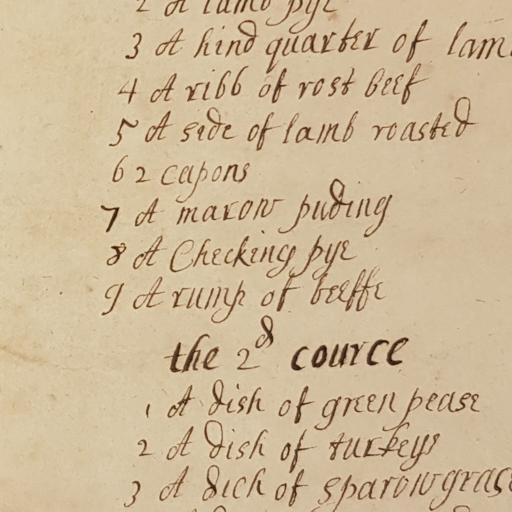 2 A lamb pye
3 A hind quarter of lam
4 A ribb of rost beef
5 A side of lamb roasted
6 2 capons
7 A marow puding
8 A Checking pye
9 A rump of beeffe
the 2d cource
1 A dish of green pease
2 A dish of turkeys
3 A dich of sparowgras